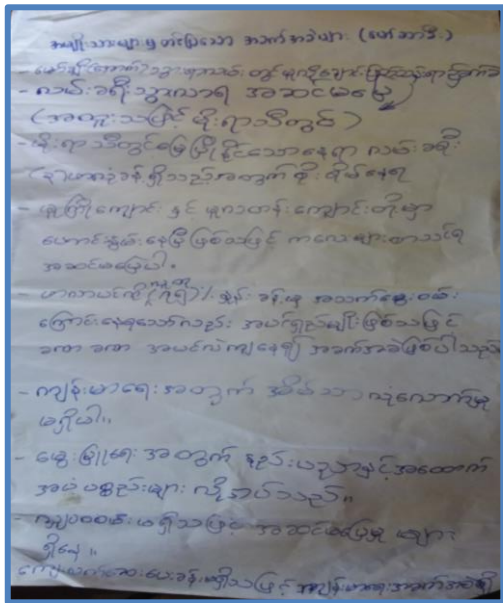 အမျိုးသားများမှ တင်ပြသော အခက်အခဲများ (ဖော်
- လမ်းခရီးသွားလာရ အဆင်မပြေ
(အထူးသဖြင့် မိုးရာသီတွင်)
- မိုးရာသီတွင်မြေပြိုနိုင်သောနေရာ လမ်းခရီး
ခန့်ရှိသည့်အတွက် စိုးရိမ်နေရ
- မူကြိုကျောင်း နှင့် မူလတန်းကျောင်းတို့မှာ
ဟောင်းနွမ်းနေပြီဖြစ်သဖြင့် ကလေးများစာသင်ရ
အဆင်မပြေပါ။
အသက်မွေးဝမ်း
ကြောင်းနေရသော်လည်း အပင်ရှည်မျိုးဖြစ်သဖြင့်
ခဏ ခဏ အပင်လဲကျနေ၍ အခက်အခဲဖြစ်ပါသည်
- ကျန်းမာရေးအတွက် အိမ်သာလုံလောက်မှု
မရှိပါ။
- မွေးမြူရေး အတွက် နည်းပညာနှင့်အထောက်
အပံ့ပစ္စည်းများ လိုအပ်သည်။
မရှိသဖြင့် အဆင်မပြေမှု များ
ရှိနေ။
ကျေးလက်ဆေးပေးခန်းမရှိသဖြင့် ကျန်းမာရေးအခက်အခဲရှိ